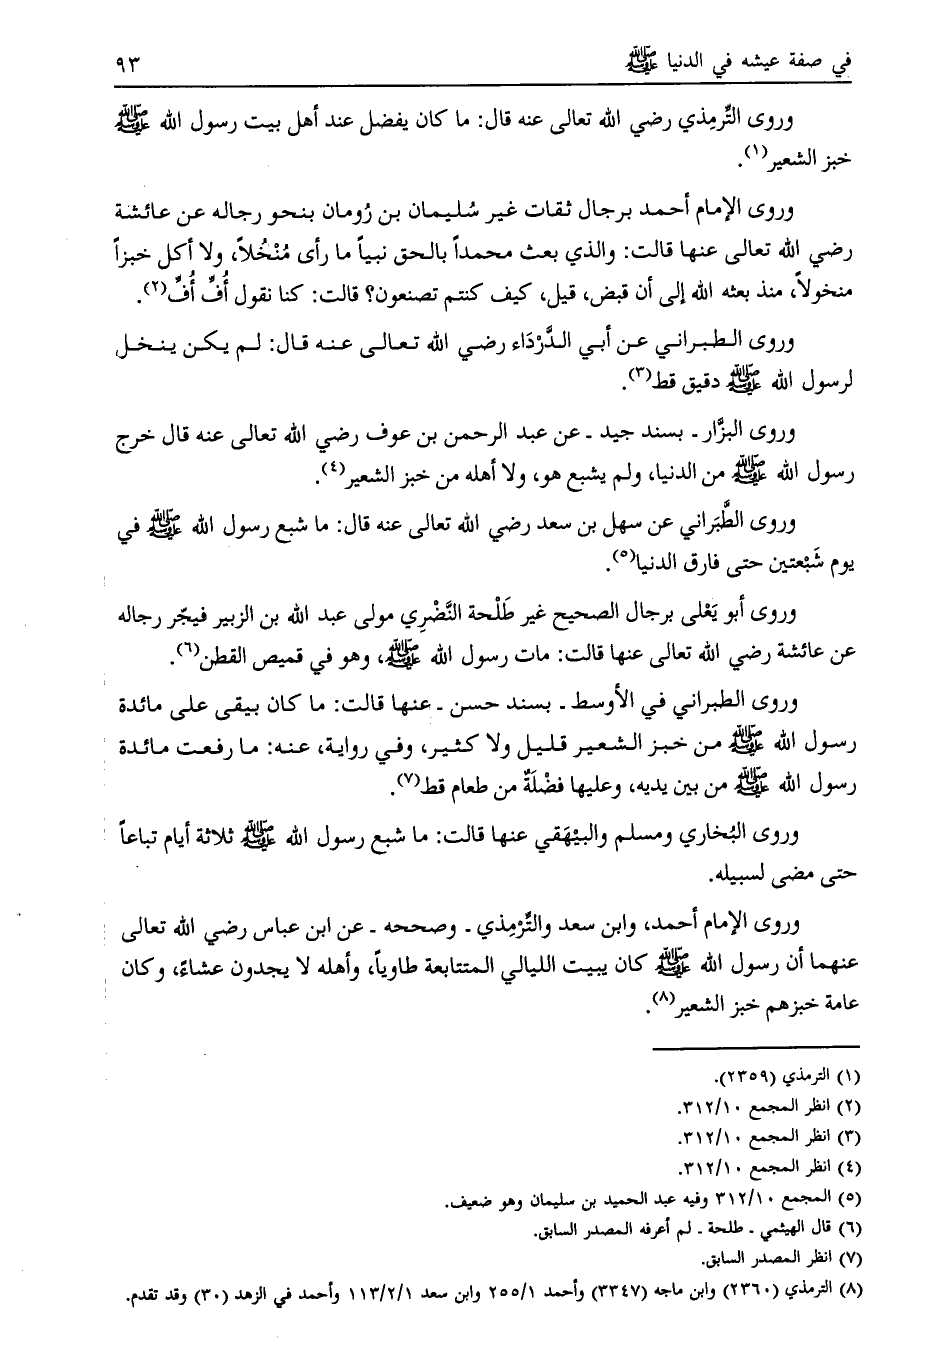 في صفة عيشه في الدنيا ﷺ ٩٣
وروى التِّرمِذي رضي الله تعالى عنه قال: ما كان يفضل عند أهل بيت رسول الله ﷺ
خبز الشعير(١).
وروى الإمام أحمد برجال ثقات غير سُليمان بن رُومان بنحو رجاله عن عائشة
رضي الله تعالى عنها قالت: والذي بعث محمداً بالحق نبياً ما رأى مُنْخُلاً، ولا أكل خبزاً
منخولاً، منذ بعثه الله إلى أن قبض، قيل، كيف كنتم تصنعون؟ قالت: كنا نقول أُفٍّ أُفٍّ(٢).
وروى الطبراني عن أبي الدَّرْدَاء رضي الله تعالى عنه قال: لم يكن ينخل
لرسول الله ﷺ دقيق قط(٣).
وروى البزَّار ـ بسند جيد ـ عن عبد الرحمن بن عوف رضي الله تعالى عنه قال خرج
رسول الله ﷺ من الدنيا، ولم يشبع هو، ولا أهله من خبز الشعير(٤).
وروى الطَّبَراني عن سهل بن سعد رضي الله تعالى عنه قال: ما شبع رسول الله ﷺ في
يوم شَبْعتين حتى فارق الدنيا(٥).
وروى أبو يَعْلى برجال الصحيح غير طَلْحة النَّضْرِي مولى عبد الله بن الزبير فيجّر رجاله
عن عائشة رضي الله تعالى عنها قالت: مات رسول الله ﷺ، وهو في قميص القطن(٦).
وروى الطبراني في الأوسط ـ بسند حسن ـ عنها قالت: ما كان يبقى على مائدة
رسول الله ﷺ من خبز الشعير قليل ولا كثير، وفي رواية، عنه: ما رفعت مائدة
رسول الله ﷺ من بين يديه، وعليها فضْلَةٌ من طعام قط(٧).
وروى البُخاري ومسلم والبيْهَقي عنها قالت: ما شبع رسول الله ﷺ ثلاثة أيام تباعاً
حتى مضى لسبيله.
وروى الإمام أحمد، وابن سعد والتِّرْمِذي ـ وصححه ـ عن ابن عباس رضي الله تعالى
عنهما أن رسول الله ﷺ كان يبيت الليالي المتتابعة طاوياً، وأهله لا يجدون عشاءً، وكان
عامة خبزهم خبز الشعير(٨).
(١) الترمذي (٢٣٥٩).
(٢) انظر المجمع ٣١٢/١٠.
(٣) انظر المجمع ٣١٢/١٠.
(٤) انظر المجمع ٣١٢/١٠.
(٥) المجمع ٣١٢/١٠ وفيه عبد الحميد بن سليمان وهو ضعيف.
(٦) قال الهيثمي ـ طلحة ـ لم أعرفه المصدر السابق.
(٧) انظر المصدر السابق.
(٨) الترمذي (٢٣٦٠) وابن ماجه (٣٣٤٧) وأحمد ٢٥٥/١ وابن سعد ١١٣/٢/١ وأحمد في الزهد (٣٠) وقد تقدم.